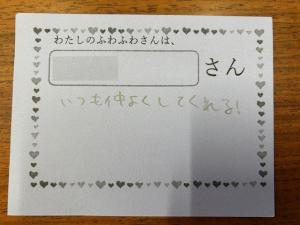 わたしのふわふわさんは、
さん
いつも仲よくしてくれる!